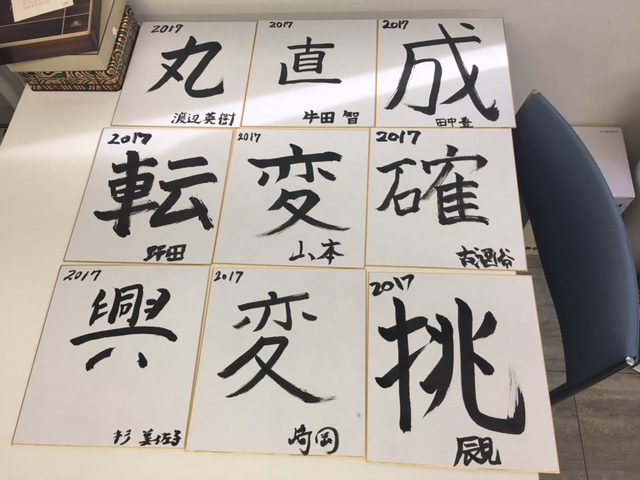 2017
丸
渡辺英樹
2017
直
牛田 智
2017
成
田中豊
2017
転
坪田
2017
変
山本
2017
確
古酒谷
2017
興
杉 美佐子
2017
変
崎岡
2017
挑